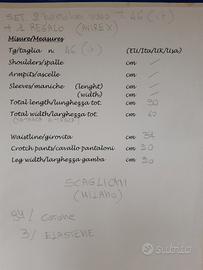 SET 2 bermuda uomo T. 46 (S)
+ 1 REGALO (AVIREX)
Misure/Measures
Tg/taglia n. 46 (S) (EU/Ita/UK/Usa)
Shoulders/spalle cm /
Armpits/ascelle cm /
Sleeves/maniche (lenght) cm /
(width) cm /
Total length/lunghezza tot. cm 50
Total width/larghezza tot. cm 60
Waistline/girovita cm 38
Crotch pants/cavallo pantaloni cm 30
Leg width/larghezza gamba cm 30
SCAGLIONI
(MILANO)
97/ cotone
3/ ELASTENE
subito